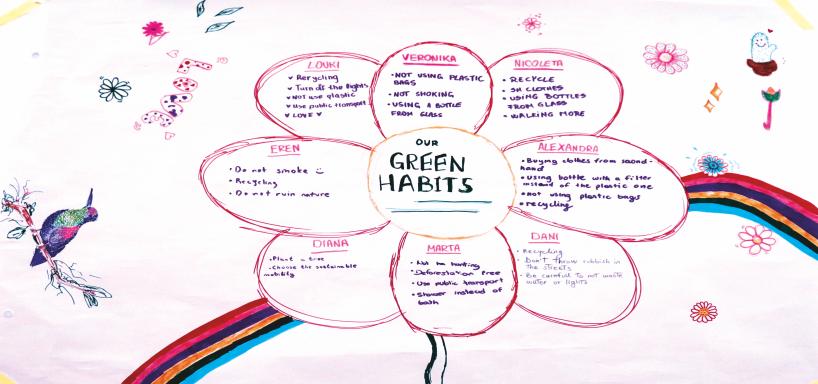 OUR
GREEN
HABITS
LOUKI
Recycling
Turn off the lights
Not use plastic
Use public transport
LOVE
VERONIKA
• NOT USING PLASTIC
BAGS
• NOT SMOKING
• USING A BOTTLE
FROM GLASS
NICOLETA
• RECYCLE
• SH CLOTHES
• USING BOTTLES
FROM GLASS
• WALKING MORE
EREN
• Do not smoke
• Recycling
• Do not ruin nature
ALEXANDRA
• Buying clothes from second-
hand
• using bottle with a filter
instead of the plastic one
• not using plastic bags
• recycling
DIANA
• Plant a tree
• Choose the sustainable
mobility
MARTA
• Not hunting
• Deforestation free
• Use public transport
• Shower instead of
bath
DANI
• Recycling
• Don't throw rubbish in
the streets
• Be careful to not waste
water or lights